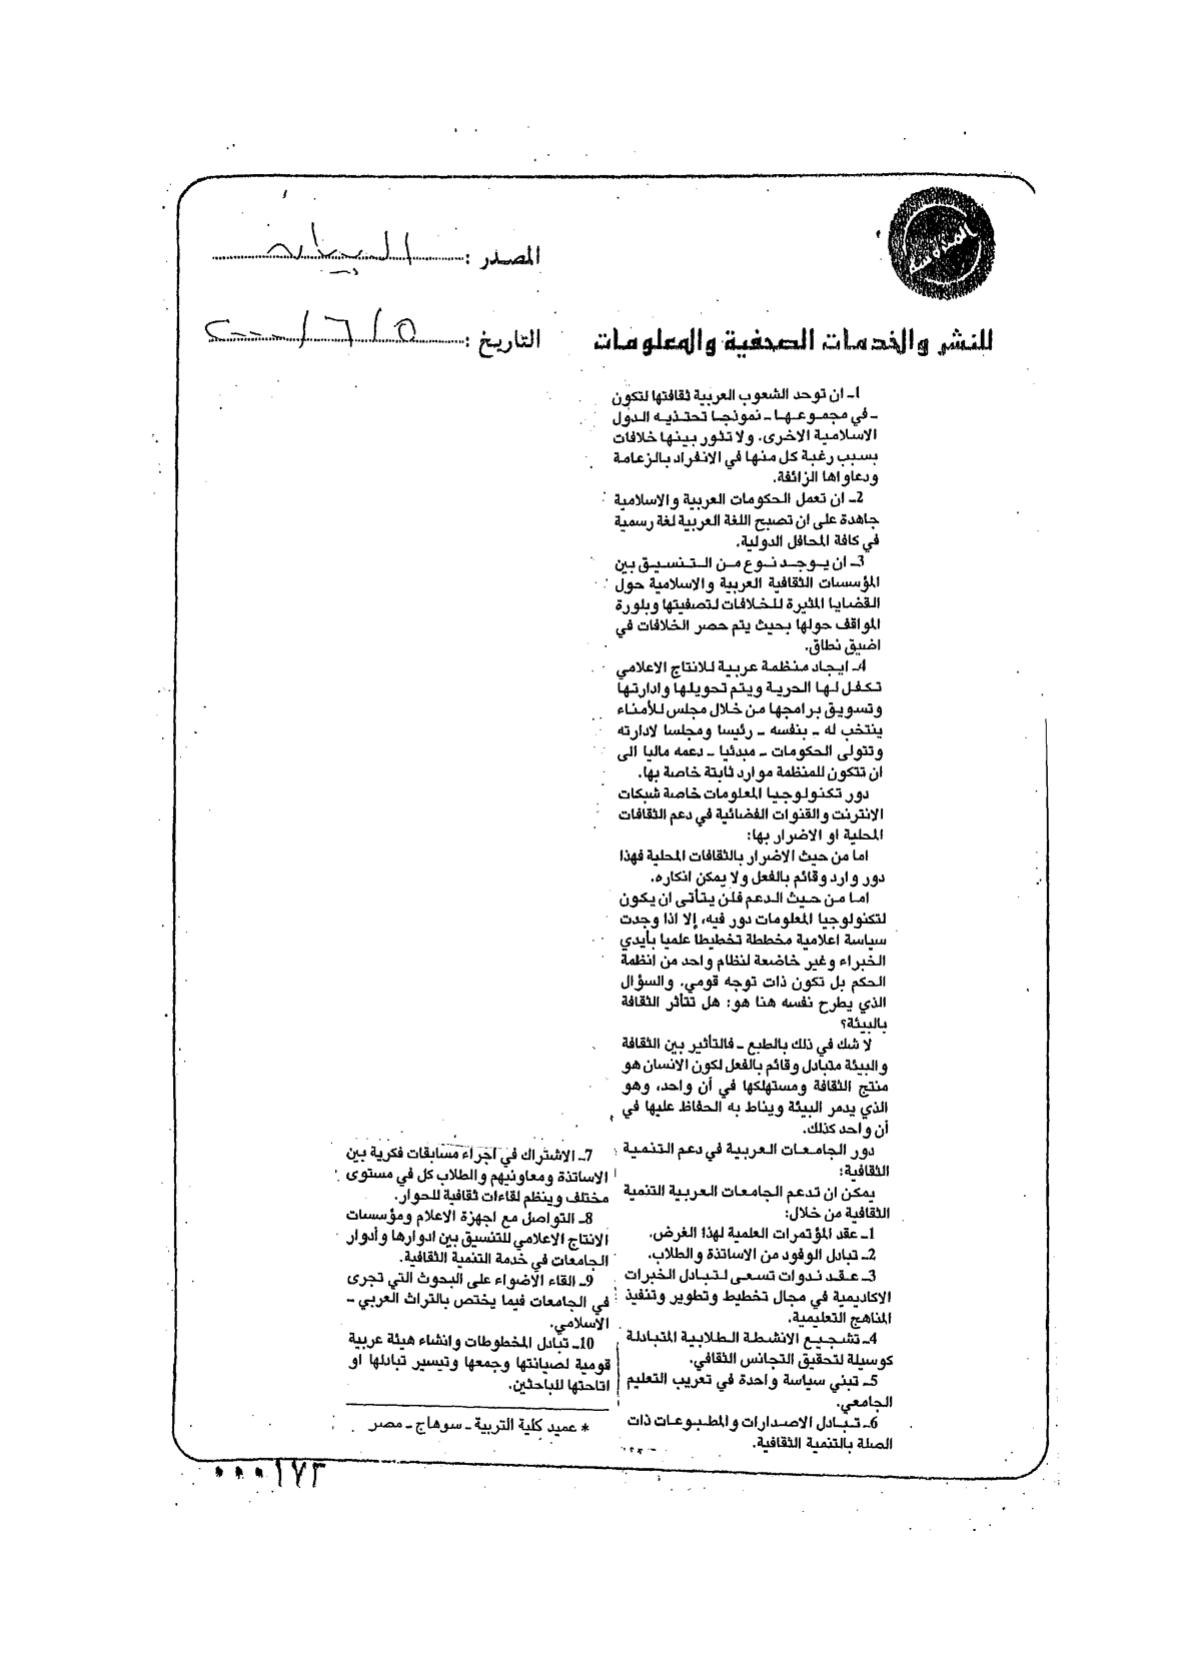 المصدر : البيان
للنشر والخدمات الصحفية والمعلومات
التاريخ : ٥ / ٦ / ٢٠٠٠
1ـ ان توحد الشعوب العربية ثقافتها لتكون
ـ في مجموعها ـ نموذجا تحتذيه الدول
الاسلامية الاخرى، ولا تثور بينها خلافات
بسبب رغبة كل منها في الانفراد بالزعامة
ودعاواها الزائفة.
2ـ ان تعمل الحكومات العربية والاسلامية
جاهدة على ان تصبح اللغة العربية لغة رسمية
في كافة المحافل الدولية.
3ـ ان يوجد نوع من التنسيق بين
المؤسسات الثقافية العربية والاسلامية حول
القضايا المثيرة للخلافات لتصفيتها وبلورة
المواقف حولها بحيث يتم حصر الخلافات في
اضيق نطاق.
4ـ ايجاد منظمة عربية للانتاج الاعلامي
تكفل لها الحرية ويتم تحويلها وادارتها
وتسويق برامجها من خلال مجلس للأمناء
ينتخب له ـ بنفسه ـ رئيسا ومجلسا لادارته
وتتولى الحكومات ـ مبدئيا ـ دعمه ماليا الى
ان تتكون للمنظمة موارد ثابتة خاصة بها.
دور تكنولوجيا المعلومات خاصة شبكات
الانترنت والقنوات الفضائية في دعم الثقافات
المحلية او الاضرار بها:
اما من حيث الاضرار بالثقافات المحلية فهذا
دور وارد وقائم بالفعل ولا يمكن انكاره.
اما من حيث الدعم فلن يتأتى ان يكون
لتكنولوجيا المعلومات دور فيه، إلا اذا وجدت
سياسة اعلامية مخططة تخطيطا علميا بأيدي
الخبراء وغير خاضعة لنظام واحد من انظمة
الحكم بل تكون ذات توجه قومي. والسؤال
الذي يطرح نفسه هنا هو: هل تتأثر الثقافة
بالبيئة؟
لا شك في ذلك بالطبع ـ فالتأثير بين الثقافة
والبيئة متبادل وقائم بالفعل لكون الانسان هو
منتج الثقافة ومستهلكها في آن واحد، وهو
الذي يدمر البيئة ويناط به الحفاظ عليها في
آن واحد كذلك.
دور الجامعات العربية في دعم التنمية
الثقافية:
يمكن ان تدعم الجامعات العربية التنمية
الثقافية من خلال:
1ـ عقد المؤتمرات العلمية لهذا الغرض.
2ـ تبادل الوفود من الاساتذة والطلاب.
3ـ عقد ندوات تسعى لتبادل الخبرات
الاكاديمية في مجال تخطيط وتطوير وتنفيذ
المناهج التعليمية.
4ـ تشجيع الانشطة الطلابية المتبادلة
كوسيلة لتحقيق التجانس الثقافي.
5ـ تبني سياسة واحدة في تعريب التعليم
الجامعي.
6ـ تبادل الاصدارات والمطبوعات ذات
الصلة بالتنمية الثقافية.
7ـ الاشتراك في اجراء مسابقات فكرية بين
الاساتذة ومعاونيهم والطلاب كل في مستوى
مختلف وينظم لقاءات ثقافية للحوار.
8ـ التواصل مع اجهزة الاعلام ومؤسسات
الانتاج الاعلامي للتنسيق بين ادوارها وأدوار
الجامعات في خدمة التنمية الثقافية.
9ـ القاء الاضواء على البحوث التي تجرى
في الجامعات فيما يختص بالتراث العربي ـ
الاسلامي.
10ـ تبادل المخطوطات وانشاء هيئة عربية
قومية لصيانتها وجمعها وتيسير تبادلها او
اتاحتها للباحثين.
* عميد كلية التربية ـ سوهاج ـ مصر
٠٠٠١٧٣